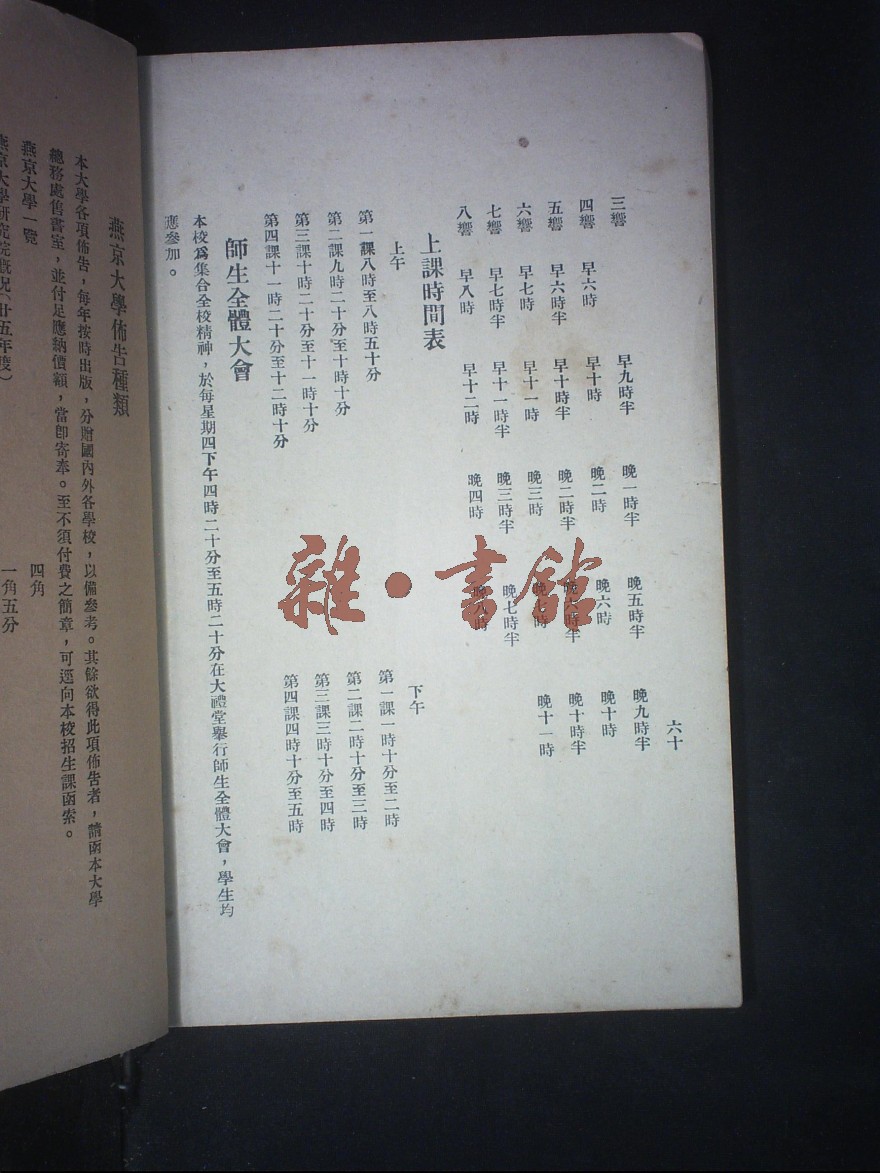 六十
三響 早九時半 晚一時半 晚五時半 晚九時半
四響 早六時 早十時 晚二時 晚六時 晚十時
五響 早六時半 早十時半 晚二時半 晚六時半 晚十時半
六響 早七時 早十一時 晚三時 晚七時 晚十一時
七響 早七時半 早十一時半 晚三時半 晚七時半
八響 早八時 早十二時 晚四時 晚八時
上課時間表
上午
下午
第一課八時至八時五十分
第一課一時十分至二時
第二課九時二十分至十時十分
第二課二時十分至三時
第三課十時二十分至十一時十分
第三課三時十分至四時
第四課十一時二十分至十二時十分
第四課四時十分至五時
師生全體大會
本校爲集合全校精神，於每星期四下午四時二十分至五時二十分在大禮堂舉行師生全體大會，學生均
應參加。
燕京大學佈告種類
本大學各項佈告，每年按時出版，分贈國內外各學校，以備參考。其餘欲得此項佈告者，請函本大學
總務處售書室，並付足應納價額，當卽寄奉。至不須付費之簡章，可逕向本校招生課函索。
燕京大學一覽 四角
燕京大學研究院概況（廿五年度） 一角五分
雜·書館